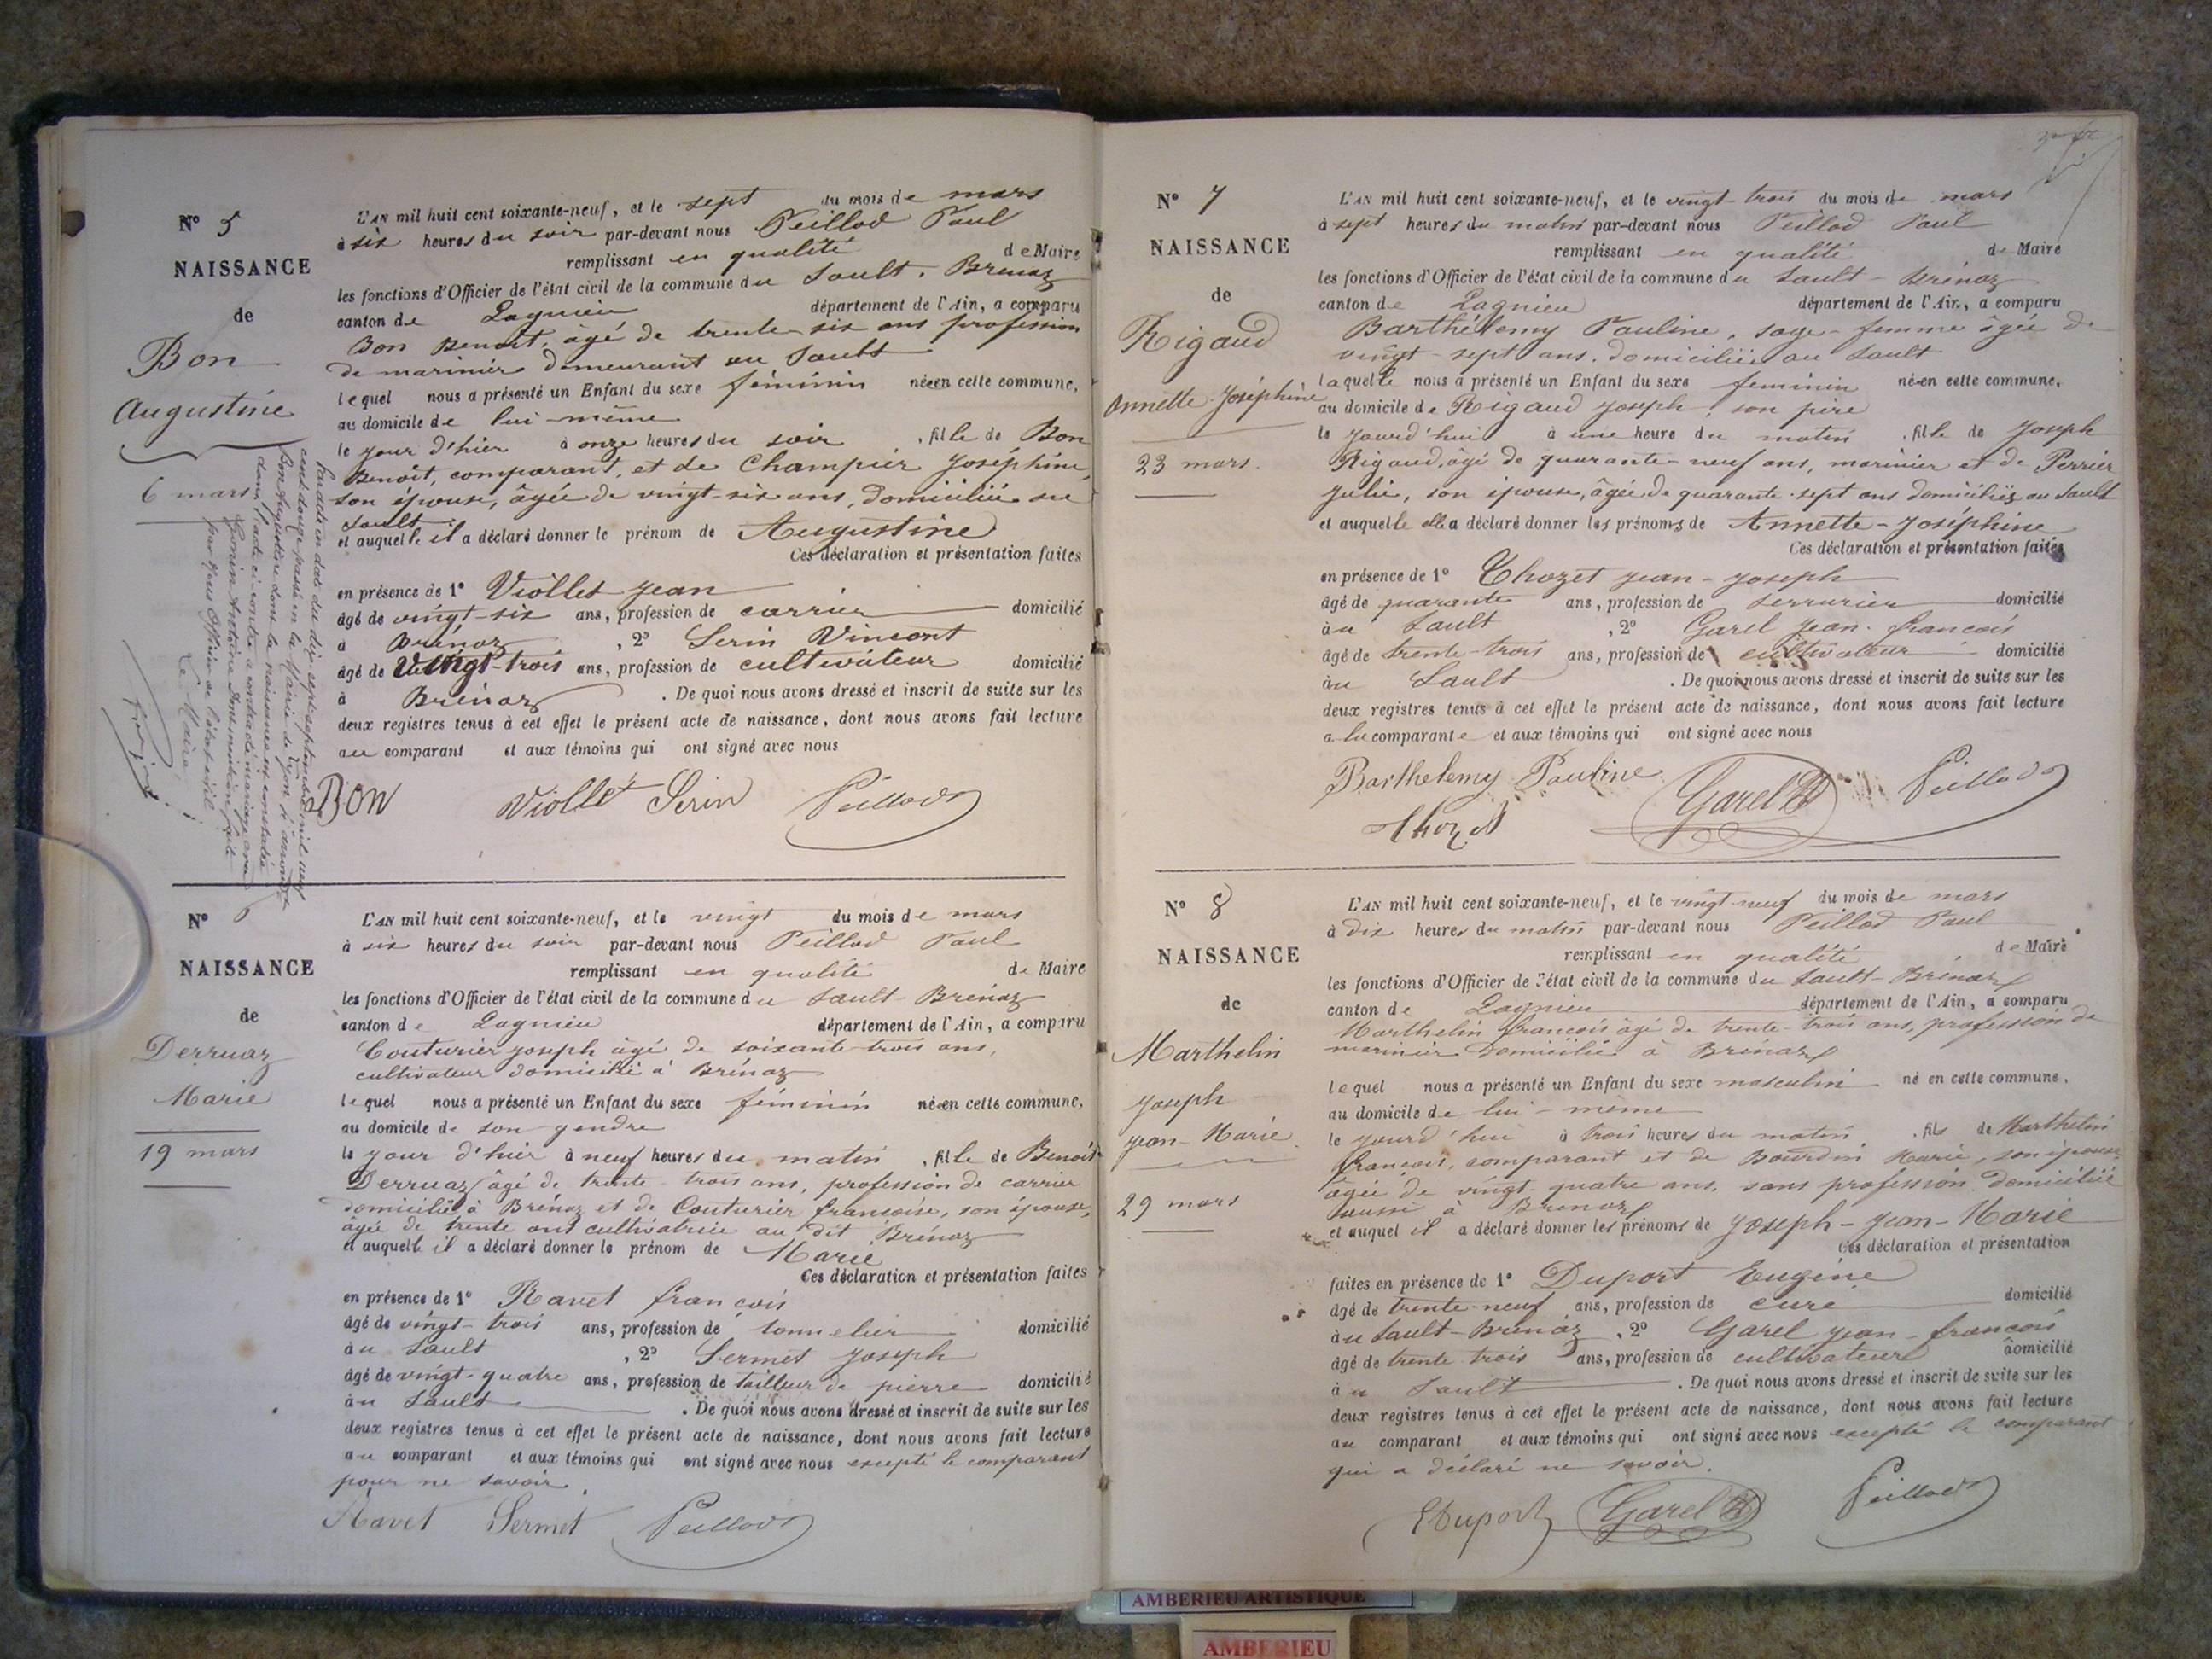 N° 5
NAISSANCE
de
Bon
Augustine
6 mars
L'AN mil huit cent soixante-neuf, et le sept du mois de mars
à six heures du soir par-devant nous Peillod Paul
remplissant en qualité de Maire
les fonctions d'Officier de l'état civil de la commune du Sault-Brénaz
canton de Lagnieu département de l'Ain, a comparu
Bon Benoit, âgé de trente six ans profession
de marinier demeurant au Sault
lequel nous a présenté un Enfant du sexe féminin née en cette commune,
au domicile de lui-même
le jour d'hier à onze heures du soir, fille de Bon
Benoit, comparant, et de Champier Joséphine,
son épouse, âgée de vingt-six ans, domiciliée au
Sault
et auquelle il a déclaré donner le prénom de Augustine
Ces déclaration et présentation faites
en présence de 1° Viollet Jean
âgé de vingt-six ans, profession de carrier domicilié
à Brénaz, 2° Serin Vincent
âgé de vingt-trois ans, profession de cultivateur domicilié
à Brénaz. De quoi nous avons dressé et inscrit de suite sur les
deux registres tenus à cet effet le présent acte de naissance, dont nous avons fait lecture
au comparant et aux témoins qui ont signé avec nous
Bon Viollet Serin Peillod
Par acte en date du dix sept septembre mil neuf
cent douze passé en la Mairie de Lyon
Bon Augustine dont la naissance est constatée
dans l'acte ci-contre a contracté mariage avec
Antoine
par nous Officier de l'état civil
Le Maire,
N° 6
NAISSANCE
de
Derruaz
Marie
19 mars
L'AN mil huit cent soixante-neuf, et le vingt du mois de mars
à six heures du soir par-devant nous Peillod Paul
remplissant en qualité de Maire
les fonctions d'Officier de l'état civil de la commune du Sault-Brénaz
canton de Lagnieu département de l'Ain, a comparu
Couturier Joseph âgé de soixante-trois ans,
cultivateur domicilié à Brénaz
lequel nous a présenté un Enfant du sexe féminin née en cette commune,
au domicile de son gendre
le jour d'hier à neuf heures du matin, fille de Benoît
Derruaz âgé de trente-trois ans, profession de carrier
domicilié à Brénaz et de Couturier françoise, son épouse,
âgée de trente ans cultivatrice au dit Brénaz
et auquelle il a déclaré donner le prénom de Marie
Ces déclaration et présentation faites
en présence de 1° Ravet françois
âgé de vingt-trois ans, profession de tonnelier domicilié
au Sault, 2° Sermet Joseph
âgé de vingt-quatre ans, profession de tailleur de pierre domicilié
au Sault. De quoi nous avons dressé et inscrit de suite sur les
deux registres tenus à cet effet le présent acte de naissance, dont nous avons fait lecture
au comparant et aux témoins qui ont signé avec nous excepté le comparant
pour ne savoir.
Ravet Sermet Peillod
N° 7
NAISSANCE
de
Rigaud
Annette-Joséphine
23 mars.
L'AN mil huit cent soixante-neuf, et le vingt-trois du mois de mars
à sept heures du matin par-devant nous Peillod Paul
remplissant en qualité de Maire
les fonctions d'Officier de l'état civil de la commune du Sault-Brénaz
canton de Lagnieu département de l'Ain, a comparu
Barthélemy Pauline, sage-femme âgée de
vingt-sept ans, domiciliée au Sault
laquelle nous a présenté un Enfant du sexe féminin née en cette commune,
au domicile de Rigaud Joseph, son père
le jourd'hui à une heure du matin, fille de Joseph
Rigaud, âgé de quarante-neuf ans, marinier et de Perrier
Julie, son épouse, âgée de quarante-sept ans domiciliés au Sault
et auquelle elle a déclaré donner les prénoms de Annette-Joséphine
Ces déclaration et présentation faites
en présence de 1° Thozet Jean-Joseph
âgé de quarante ans, profession de serrurier domicilié
au Sault, 2° Garel Jean-françois
âgé de trente-trois ans, profession de cultivateur domicilié
au Sault. De quoi nous avons dressé et inscrit de suite sur les
deux registres tenus à cet effet le présent acte de naissance, dont nous avons fait lecture
à la comparante et aux témoins qui ont signé avec nous
Barthelemy Pauline Garel Peillod
Thozet
N° 8
NAISSANCE
de
Marthelin
Joseph
Jean-Marie
29 mars
L'AN mil huit cent soixante-neuf, et le vingt-neuf du mois de mars
à dix heures du matin par-devant nous Peillod Paul
remplissant en qualité de Maire
les fonctions d'Officier de l'état civil de la commune du Sault-Brénaz
canton de Lagnieu département de l'Ain, a comparu
Marthelin françois âgé de trente-trois ans, profession de
marinier domicilié à Brénaz
lequel nous a présenté un Enfant du sexe masculin né en cette commune,
au domicile de lui-même
le jourd'hui à trois heures du matin, fils de Marthelin
françois, comparant et de Bourdin Marie, son épouse
âgée de vingt-quatre ans, sans profession domiciliée
aussi à Brénaz
et auquel il a déclaré donner les prénoms de Joseph-Jean-Marie
Ces déclaration et présentation
faites en présence de 1° Duport Eugène
âgé de trente-neuf ans, profession de curé domicilié
au Sault-Brénaz, 2° Garel Jean-françois
âgé de trente-trois ans, profession de cultivateur domicilié
au Sault. De quoi nous avons dressé et inscrit de suite sur les
deux registres tenus à cet effet le présent acte de naissance, dont nous avons fait lecture
au comparant et aux témoins qui ont signé avec nous excepté le comparant
qui a déclaré ne savoir.
E Duport Garel Peillod
AMBERIEU ARTISTIQUE
AMBERIEU